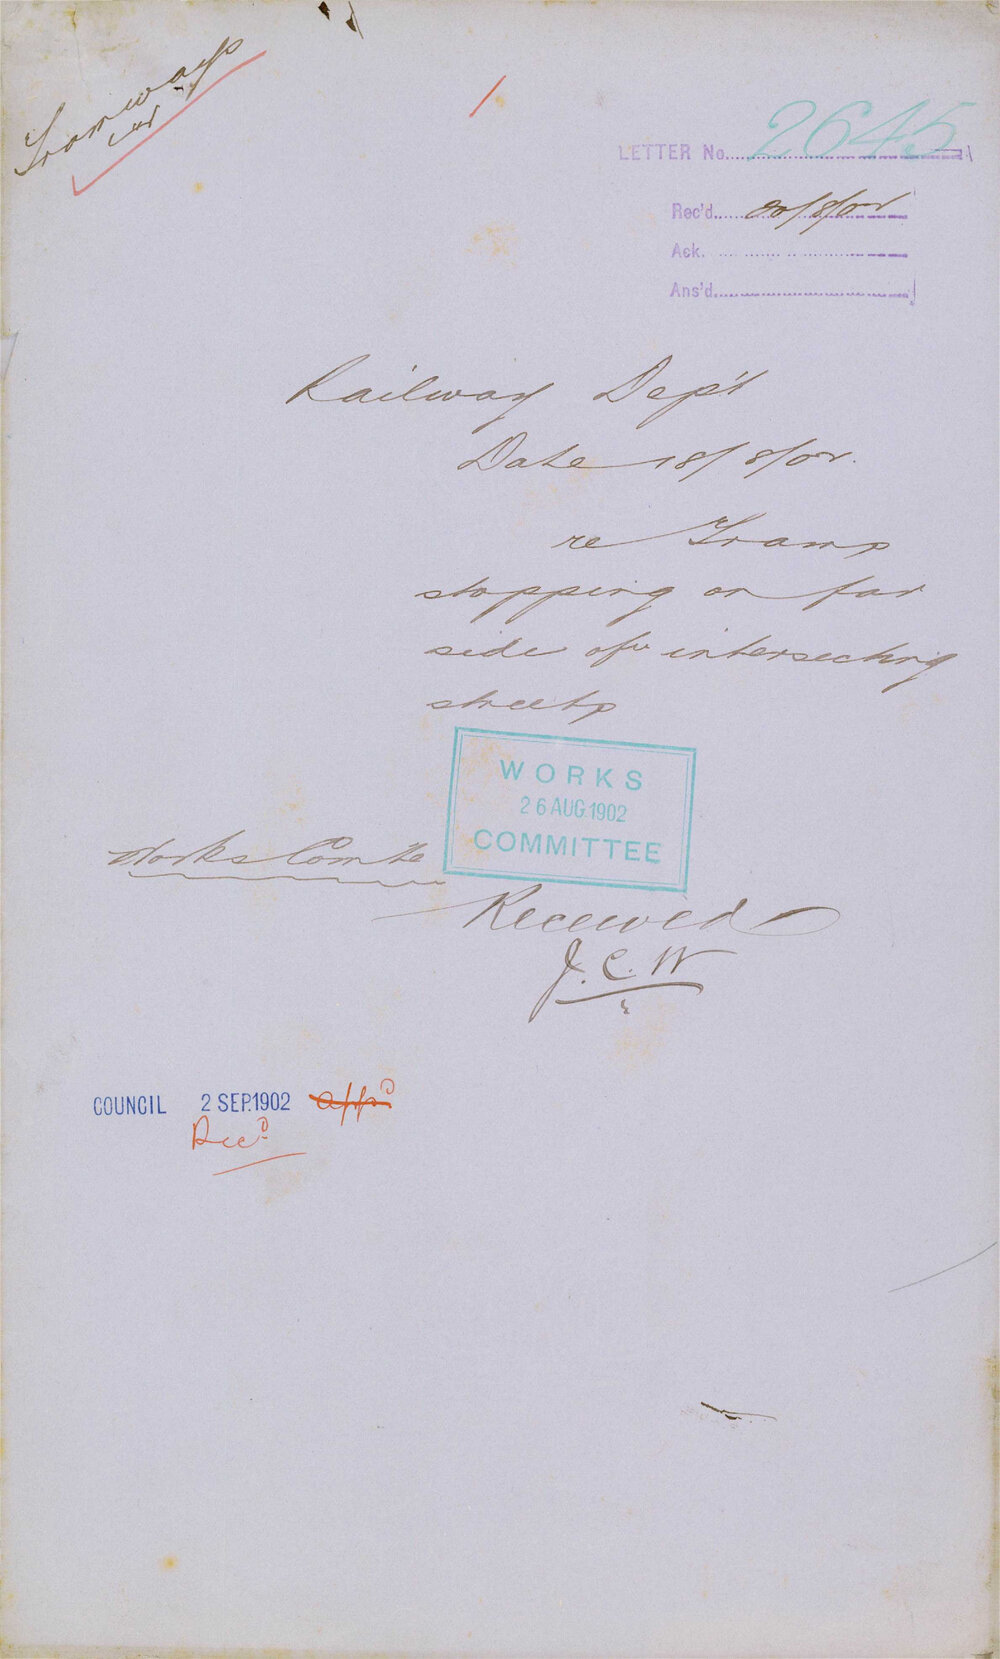 Tramways
1
LETTER No. 2645
Rec'd. 20/8/02
Ack.
Ans'd.
Railway Dep't
Date 18/8/02.
re Trams
stopping on far
side of intersecting
streets
WORKS
26 AUG. 1902
COMMITTEE
Works Com'tee
Received
J. C. W
COUNCIL 2 SEP. 1902 app'd
Rec'd